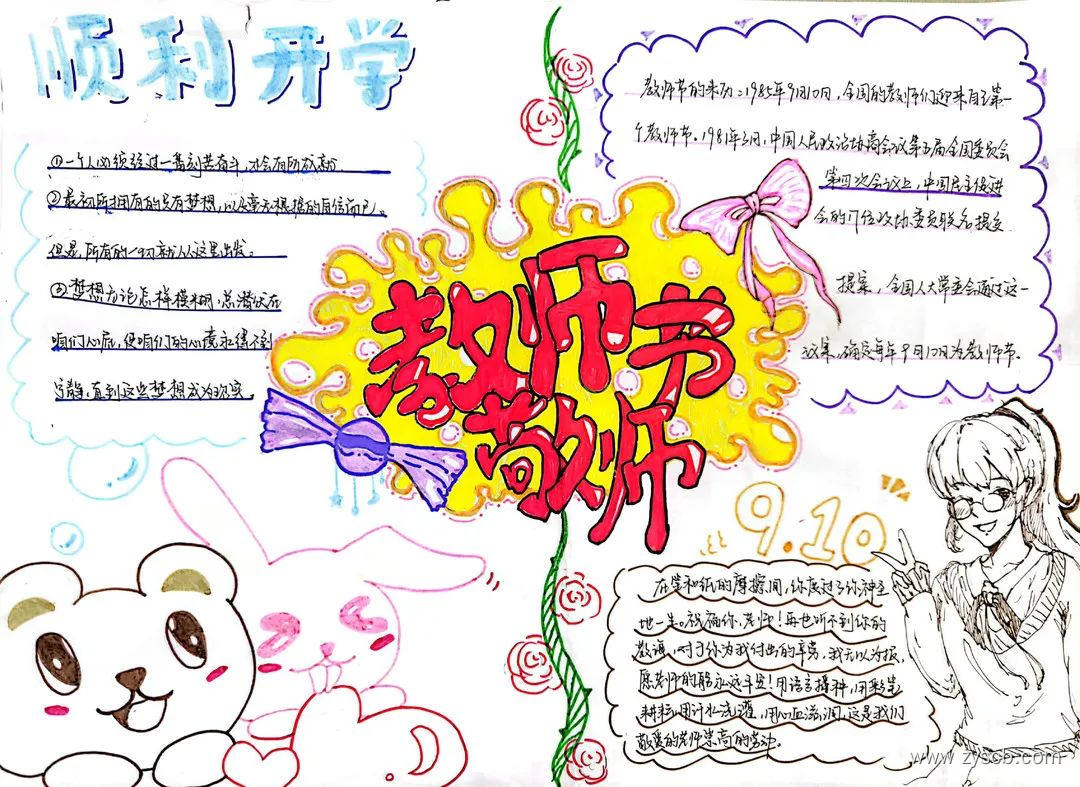 顺利开学
①一个人必须经过一番刻苦奋斗,才会有所成就。
②最初所拥有的只有梦想,以及毫无根据的自信而已。
但是,所有的一切就从这里出发。
③梦想无论怎样模糊,总潜伏在
咱们心底,使咱们的心境永得不到
宁静,直到这些梦想成为现实。
教师节的来历:1985年9月10日,全国的教师们迎来自己第一
个教师节。1981年3月,中国人民政治协商会议第五届全国委员会
第四次会议上,中国民主促进
会的17位政协委员联名提交
提案,全国人大常委会通过这一
议案,确定每年9月10日为教师节。
教师节
敬师
9.10
在笔和纸的摩擦间,你度过了你神圣
地一生。祝福你,老师!再也听不到你的
教诲,对于你为我付出的辛劳,我无以为报,
愿老师的
用语言播种,用彩笔
耕耘,用汗水浇灌,用心血滋润,这是我们
敬爱的老师崇高的劳动。
www.zysco.com